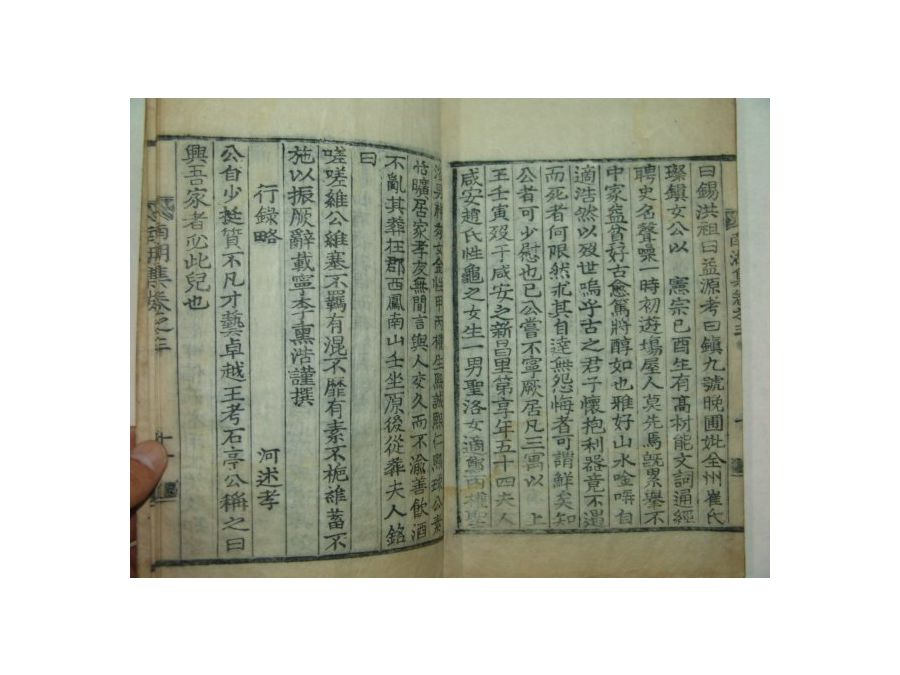 曰錫洪祖曰益源考曰鎭九號晩圃妣全州崔氏
璨鎭女公以 憲宗己酉生有高材能文詞涌經
聘史名聲噪一時初遊場屋人莫先焉旣累擧不
中家益貧好古愈篤將醇如也雅好山水唫嘯自
適浩然以歿世嗚乎古之君子懷抱利器竟不遇
而死者何限然求其自達無怨悔者可謂鮮矣知
公者可少慰也已公嘗不寧厥居凡三寓以 上
王壬寅歿于咸安之新昌里第享年五十四夫人
咸安趙氏性龜之女生一男聖洛女適
女金性
恬曠居家孝友無間言與人交久而不渝善飮酒
不亂其葬在郡西鳳南山壬坐原後從葬夫人銘
曰
嗟嗟維公維塞不羈有混不靡有素不梔維蓄不
施以振厥辭載寧李熏浩謹撰
行錄略 河述孝
公自少挺質不凡才藝卓越王考石亭公稱之曰
興吾家者必此兒也
集卷之三